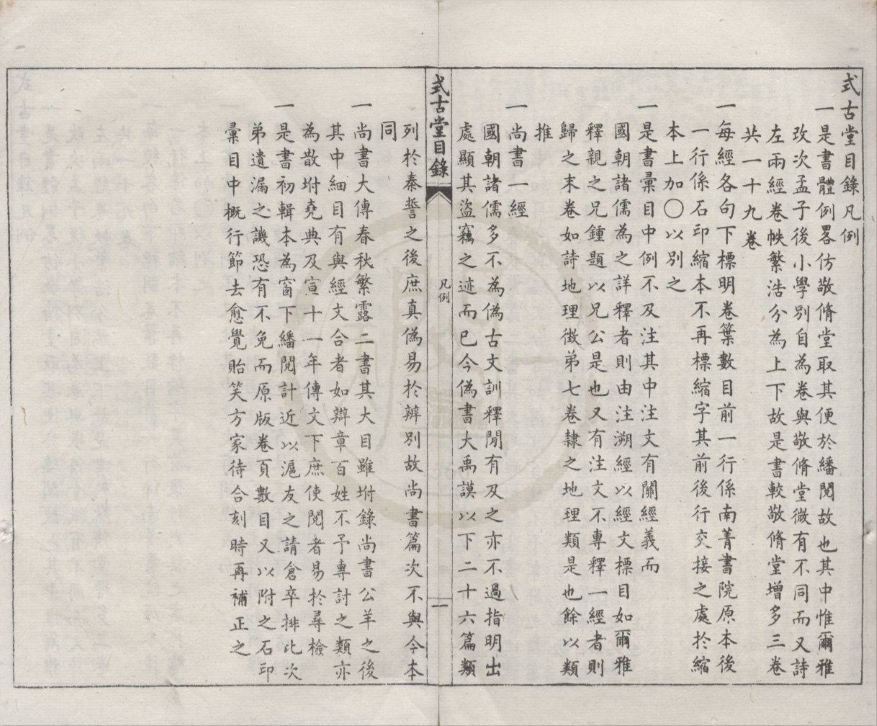 式古堂目錄凡例
一是書體例畧仿敬脩堂取其便於繙閱故也其中惟爾雅
攷次孟子後小學別自為卷與敬脩堂微有不同而又詩
左兩經卷帙繁浩分為上下故是書較敬脩堂增多三卷
共一十九卷
一每經各句下標明卷葉數目前一行係南菁書院原本後
一行係石印縮本不再標縮字其前後行交接之處於縮
本上加〇以別之
一是書彙目中例不及注其中注文有關經義而
國朝諸儒為之詳釋者則由注溯經以經文標目如爾雅
釋親之兄鍾題以兄公是也又有注文不專釋一經者則
歸之末卷如詩地理徵弟七卷隸之地理類是也餘以類
推
一尚書一經
國朝諸儒多不為偽古文訓釋閒有及之亦不過指明出
處顯其盜竊之迹而已今偽書大禹謨以下二十六篇類
式古堂目錄
凡例
一
列於秦誓之後庶真偽易於辨別故尚書篇次不與今本
同
一尚書大傳春秋繁露二書其大目雖坿錄尚書公羊之後
其中細目有與經文合者如辯章百姓不予專討之類亦
為散坿堯典及宣十一年傳文下庶使閱者易於尋檢
一是書初輯本為窗下繙閱計近以滬友之請倉卒排比次
弟遺漏之譏恐有不免而原版卷頁數目又以附之石印
彙目中概行節去愈覺貽笑方家待合刻時再補正之